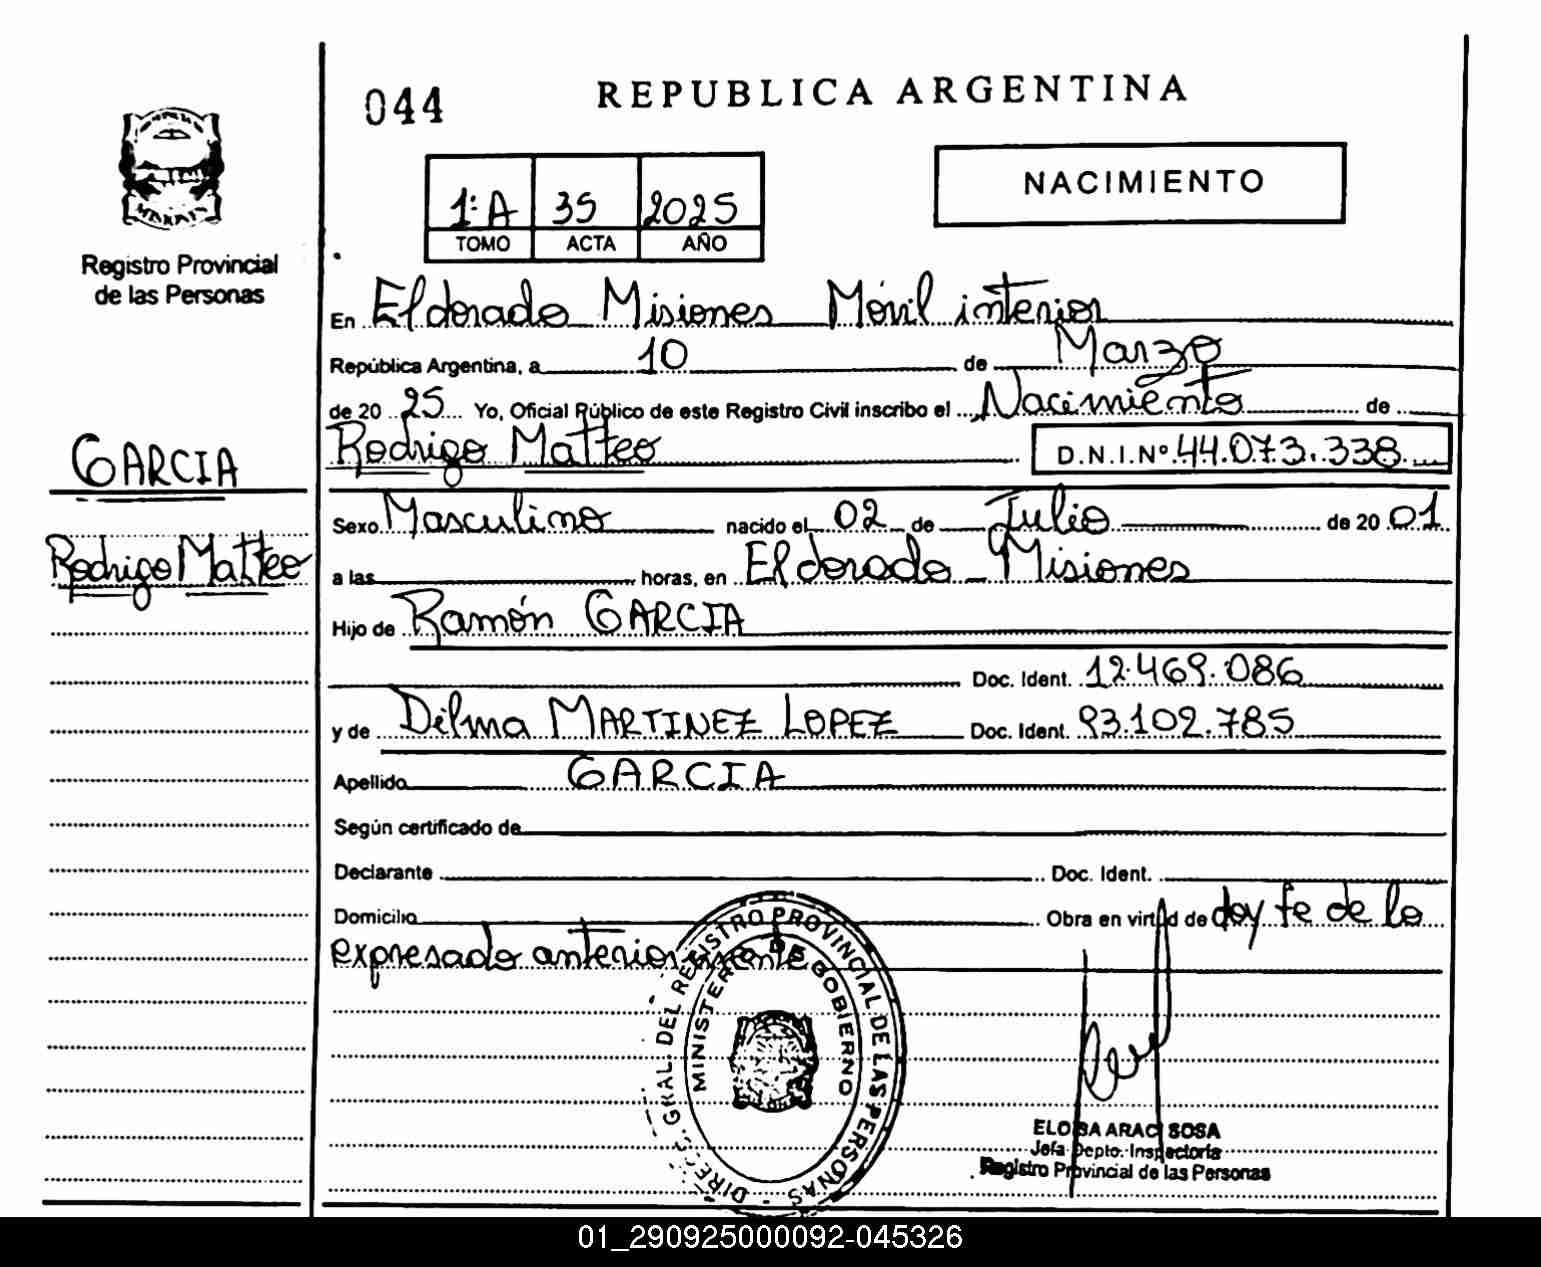 044
REPUBLICA ARGENTINA
NACIMIENTO
1ºA 35 2025
TOMO ACTA AÑO
Registro Provincial
de las Personas
GARCIA
Rodrigo Matteo
En Eldorado Misiones Móvil interior
República Argentina, a 10 de Marzo
de 20 25 Yo, Oficial Público de este Registro Civil inscribo el Nacimiento de
Rodrigo Matteo D.N.I.Nº 44.073.338
Sexo Masculino nacido el 02 de Julio de 20 01
a las horas, en Eldorado Misiones
Hijo de Ramón GARCIA
Doc. Ident. 12.469.086
y de Delma MARTINEZ LOPEZ Doc. Ident. 93.102.785
Apellido GARCIA
Según certificado de
Declarante Doc. Ident.
Domicilio Obra en virtud de doy fe de lo
expresado anteriormente
DIREC. GRAL. DEL REGISTRO PROVINCIAL DE LAS PERSONAS -
MINISTERIO DE GOBIERNO
ELOISA ARACI SOSA
Jefa Depto. Inspectoría
Registro Provincial de las Personas
01_290925000092-045326